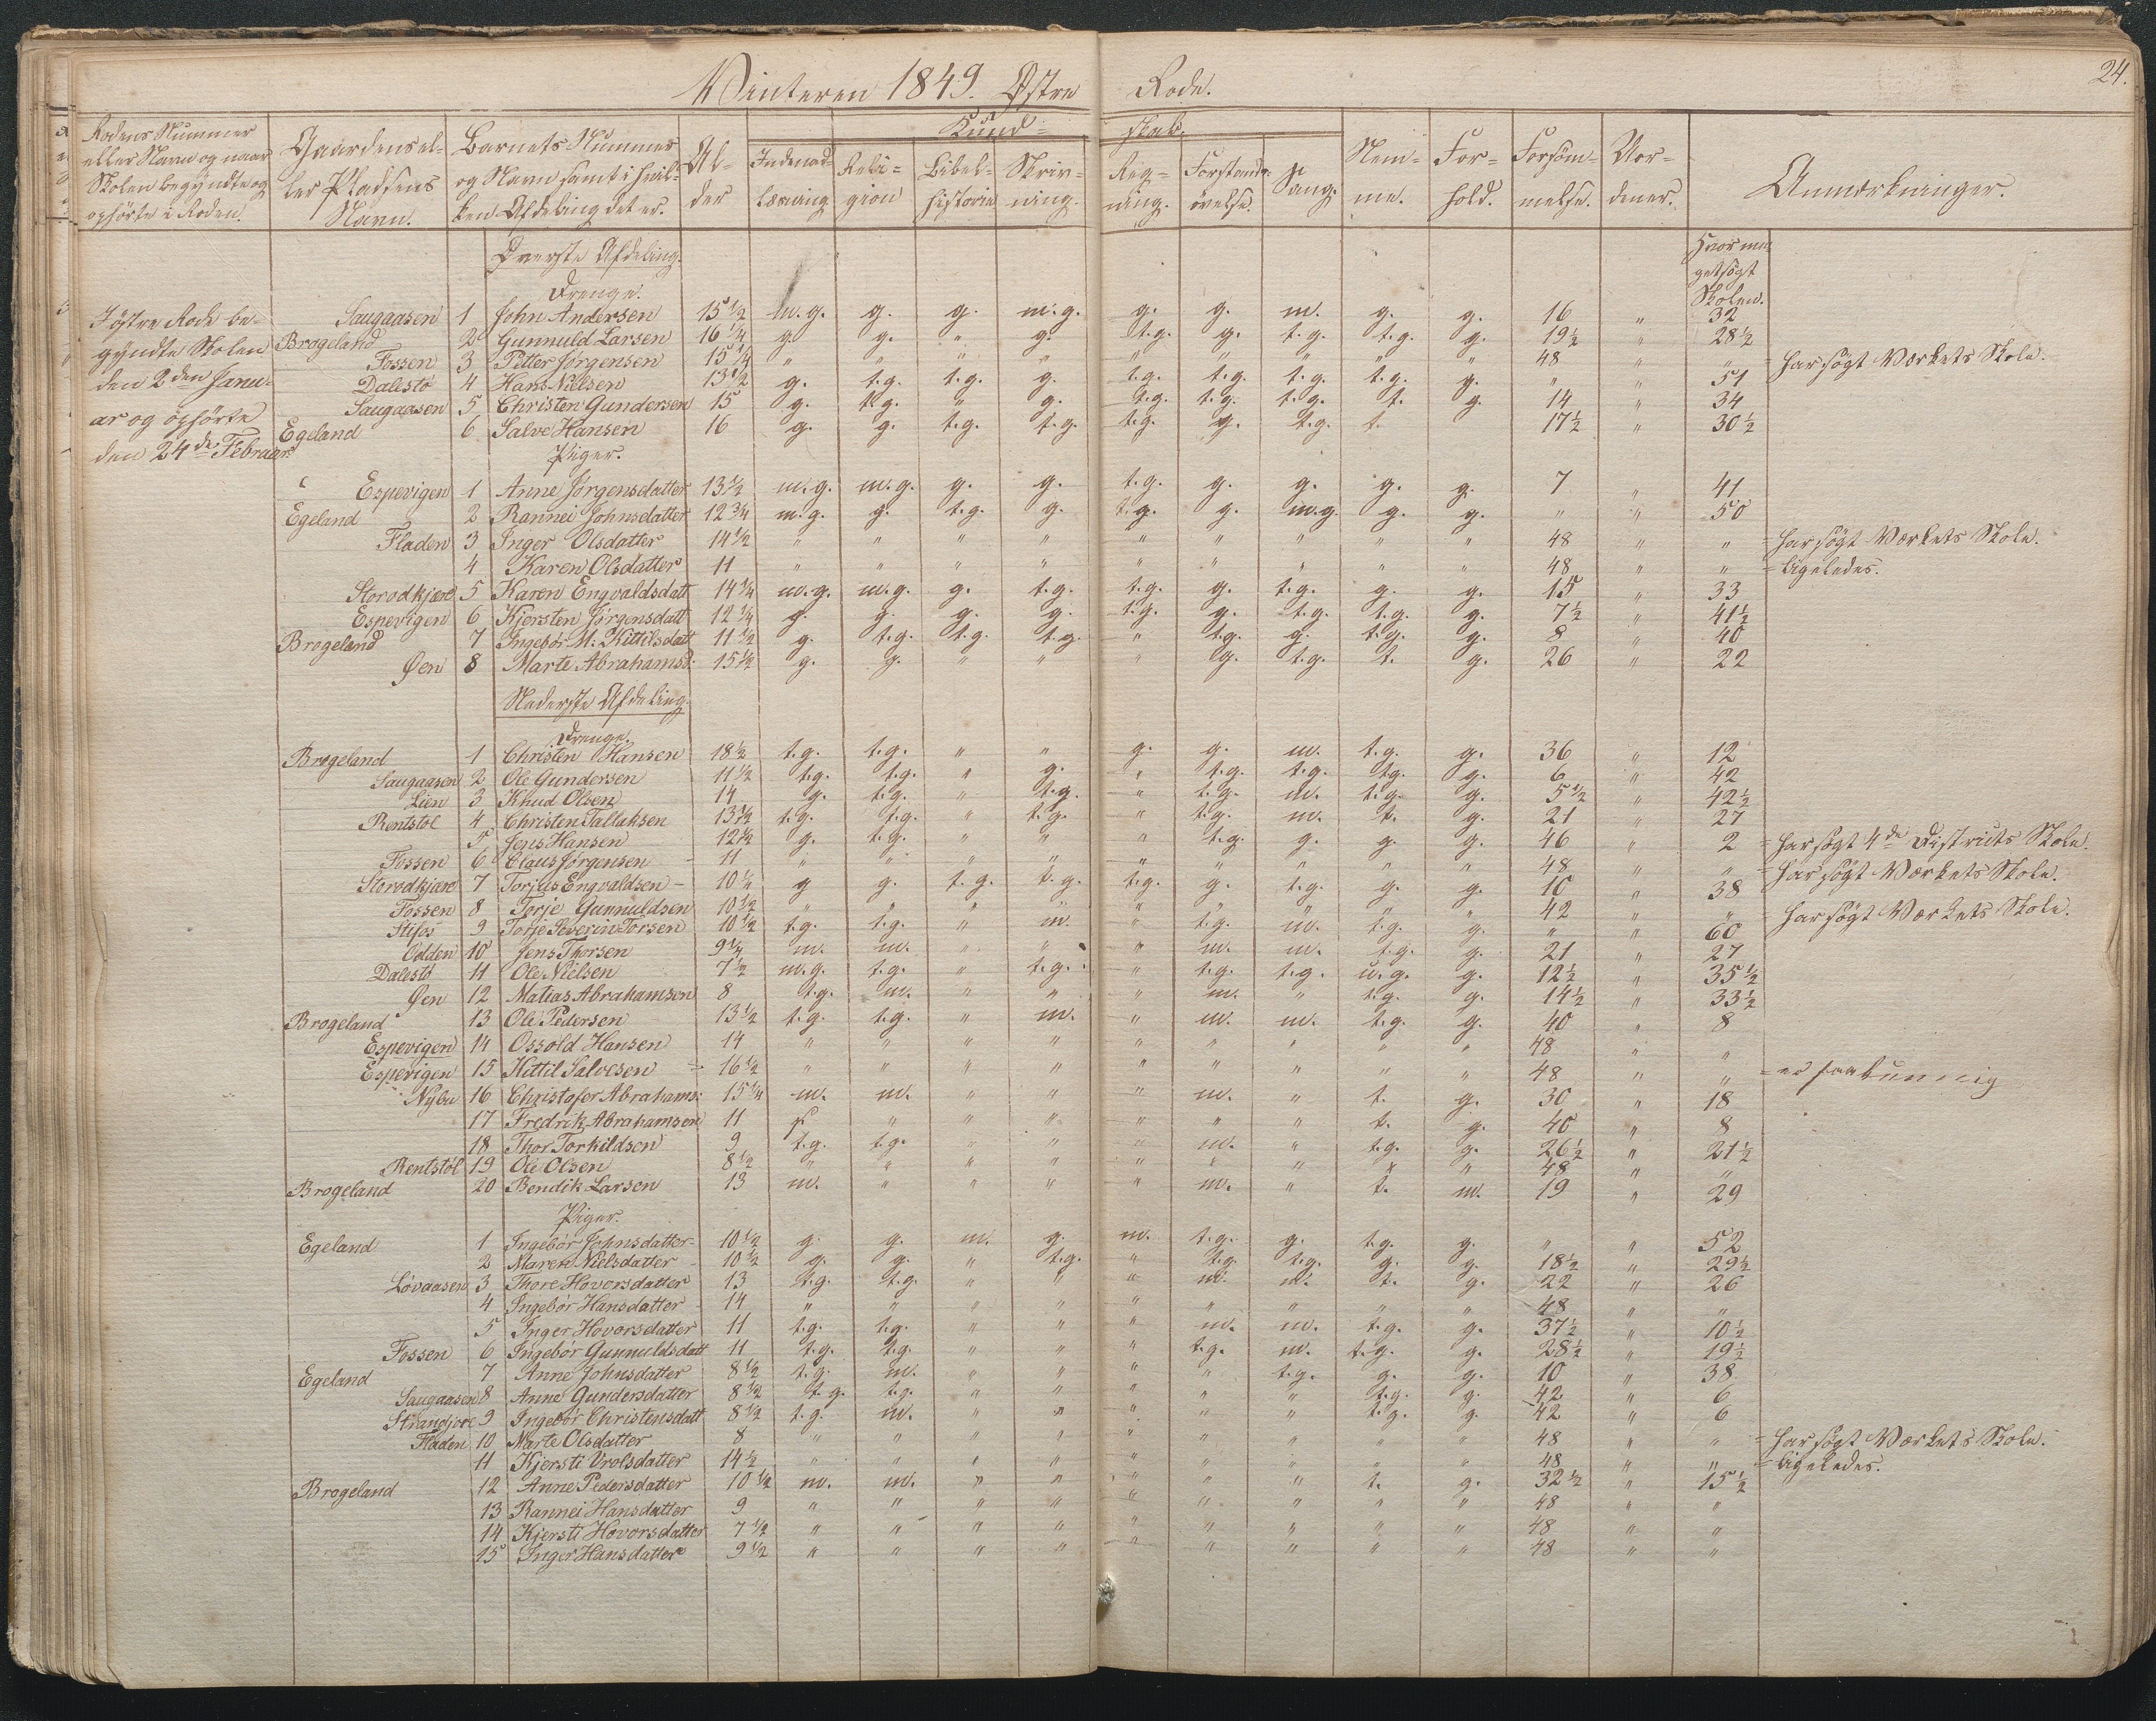 24.
Vinteren 1849. Østre Rode.
Rodens Nummer eller Navn og naar Skolen begyndte og ophörte i Roden. | Gaardens eller Pladsens Navn. | Barnets Nummer og Navn samt i hvilken Afdeling det er. | Alder | Kundskab. | Indenadlæsning | Religion | Bibelhistorie | Skrivning. | Regning. | Forstandsövelse. | Sang. | Nemme. | Forhold. | Forsömmelse. | Vordener. | Anmærkninger.
Hvor meget sögt Skolen.
I östre Rode be-
gyndte Skolen
den 2den Janu-
ar og ophörte
den 24de Februar
Øverste Afdeling.
Drenge.
Saugaasen 1 John Andersen 15 1/2 m.g. g. g. m.g. g. g. m. g. g. 16 " 32
Brogeland 2 Gunnuld Larsen 16 1/4 g. g. " g. t.g. g. t.g. t.g. g. 19 1/2 " 28 1/2
Fossen 3 Petter Jørgensen 15 1/4 " " " " " " " " " 48 " " = har sögt Værkets Skole.
Dalestö 4 Hans Nielsen 13 1/2 g. t.g. t.g. g. t.g. t.g. t.g. t.g. g. " " 51
Saugaasen 5 Christen Gundersen 15 g. t.g. " g. t.g. t.g. t.g. t. g. 14 " 34
Egeland 6 Salve Hansen 16 g. g. t.g. t.g. t.g. g. t.g. t. 17 1/2 " 30 1/2
Piger.
Espevigen 1 Anne Jörgensdatter 13 1/2 m.g. m.g. g. g. t.g. g. g. g. g. 7 " 41
Egeland 2 Rannei Johnsdatter 12 3/4 m.g. g. t.g. g. t.g. g. m.g. g. g. " " 50
Fladen 3 Inger Olsdatter 14 1/2 " " " " " " " " " 48 " " = har sögt Værkets Skole.
4 Karen Olsdatter 11 " " " " " " " " " 48 " " = ligeledes.
Storodkjære 5 Karen Engvaldsdatt 14 1/4 m.g. m.g. g. t.g. t.g. g. t.g. g. g. 15 " 33
Espevigen 6 Kjersten Jörgensdatt 12 1/4 g. g. g. g. t.g. g. t.g. t.g. g. 7 1/2 " 41 1/2
Brogeland 7 Ingebör M. Kittilsdatt 11 1/2 g. t.g. t.g. t.g. " t.g. g. t.g. g. 8 " 40
Øen 8 Marte Abrahamsd. 15 1/2 g. g. " " " g. t.g. t. g. 26 " 22
Nederste Afdeling.
Drenge.
Brogeland 1 Christen Hansen 18 1/2 t.g. t.g. " " g. g. m. t.g. g. 36 " 12
Saugaasen 2 Ole Gundersen 11 1/2 t.g. t.g. " g. " t.g. t.g. t.g. g. 6 " 42
Lien 3 Knud Olsen 14 g. t.g. " t.g. " t.g. m. t.g. g. 5 1/2 " 42 1/2
Rentstöl 4 Christen Tallaksen 13 1/2 t.g. t.g. " t.g. " t.g. m. t. g. 21 " 27
5 Jens Hansen 12 1/2 g. t.g. " " " t.g. g. g. g. 46 " 2 = har sögt 4de Districts Skole.
Fossen 6 Claus Jørgensen 11 " " " " " " " " " 48 " " = har sögt Værkets Skole.
Storodkjære 7 Torjus Engvaldsen 10 1/2 g g. t.g. t.g. t.g. g. t.g. g. g. 10 " 38
Fossen 8 Torje Gunnuldsen 10 1/2 " " " " " " " " " 42 " " = har sögt Værkets Skole.
Stifos 9 Torje Severin Torsen 10 1/2 t.g. t.g. " m. " t.g. m. t.g. g. " " 60
Odden 10 Jens Thorsen 9 1/4 m. m. " " " m. m. t.g. g. 21 " 27
Dalestö 11 Ole Nielsen 7 1/2 m.g. t.g. " t.g. " t.g. t.g. u.g. g. 12 1/2 " 35 1/2
Øen 12 Matias Abrahamsen 8 t.g. m. " " " m. " t.g. g. 14 1/2 " 33 1/2
Brogeland 13 Ole Pedersen 13 1/2 t.g. t.g. " m. " m. m. t.g. g. 40 " 8
Espevigen 14 Ossold Hansen 14 " " " " " " " " " 48 " "
Espevigen 15 Kittil Salvesen 16 1/2 " " " " " " " " " 48 " " = er
Nybu 16 Christofer Abrahams: 15 1/4 m. m. " " " m. " t. g. 30 " 18
17 Fredrik Abrahamsen 11 " " " " " " t. g. 40 " 8
18 Thor Torkildsen 9 t.g. t.g. " " " m. " t.g. g. 26 1/2 " 21 1/2
Rentstöl 19 Ole Olsen 8 1/2 " " " " " " " " " 48 " "
Brogeland 20 Bendik Larsen 13 m. " " " " m. " t. m. 19 " 29
Piger.
Egeland 1 Ingebör Johnsdatter 10 1/2 g. g. m. g. m. t.g. g. t.g. g. " " 52
2 Maren Nielsdatter 10 1/2 g. g. " t.g. " t.g. t.g. g. g. 18 1/2 " 29 1/2
Lövaasen 3 Thore Hovorsdatter 13 t.g. t.g. " " " m. m. t. g. 22 " 26
4 Ingebör Hansdatter 14 " " " " " " " " " 48 " "
5 Inger Hovorsdatter 11 t.g. t.g. " " " m. m. t.g. g. 37 1/2 " 10 1/2
Fossen 6 Ingebör Gunnuldsdatt 11 t.g. t.g. " " " t.g. m. t.g. g. 28 1/2 " 19 1/2
Egeland 7 Anne Johnsdatter 8 1/2 t.g. m. " " " " t.g. g. g. 10 " 38
Saugaasen 8 Anne Gundersdatter 8 1/2 t.g. t.g. " " " " " t.g. g. 42 " 6
9 Ingebör Christensdatt 8 1/2 t.g. m. " " " " " t.g. g. 42 " 6
Fladen 10 Marte Olsdatter 8 " " " " " " " " " 48 " " = har sögt Værkets Skole.
11 Kjersti Vrolsdatter 14 1/2 " " " " " " " " " 48 " " = ligeledes.
Brogeland 12 Anne Pedersdatter 10 1/2 m. m. " " " " " t. g. 32 1/2 " 15 1/2
13 Rannei Hansdatter 9 " " " " " " " " " 48 " "
14 Kjersti Hovorsdatter 7 1/2 " " " " " " " " " 48 " "
15 Inger Hansdatter 9 1/2 " " " " " " " " " 48 " "